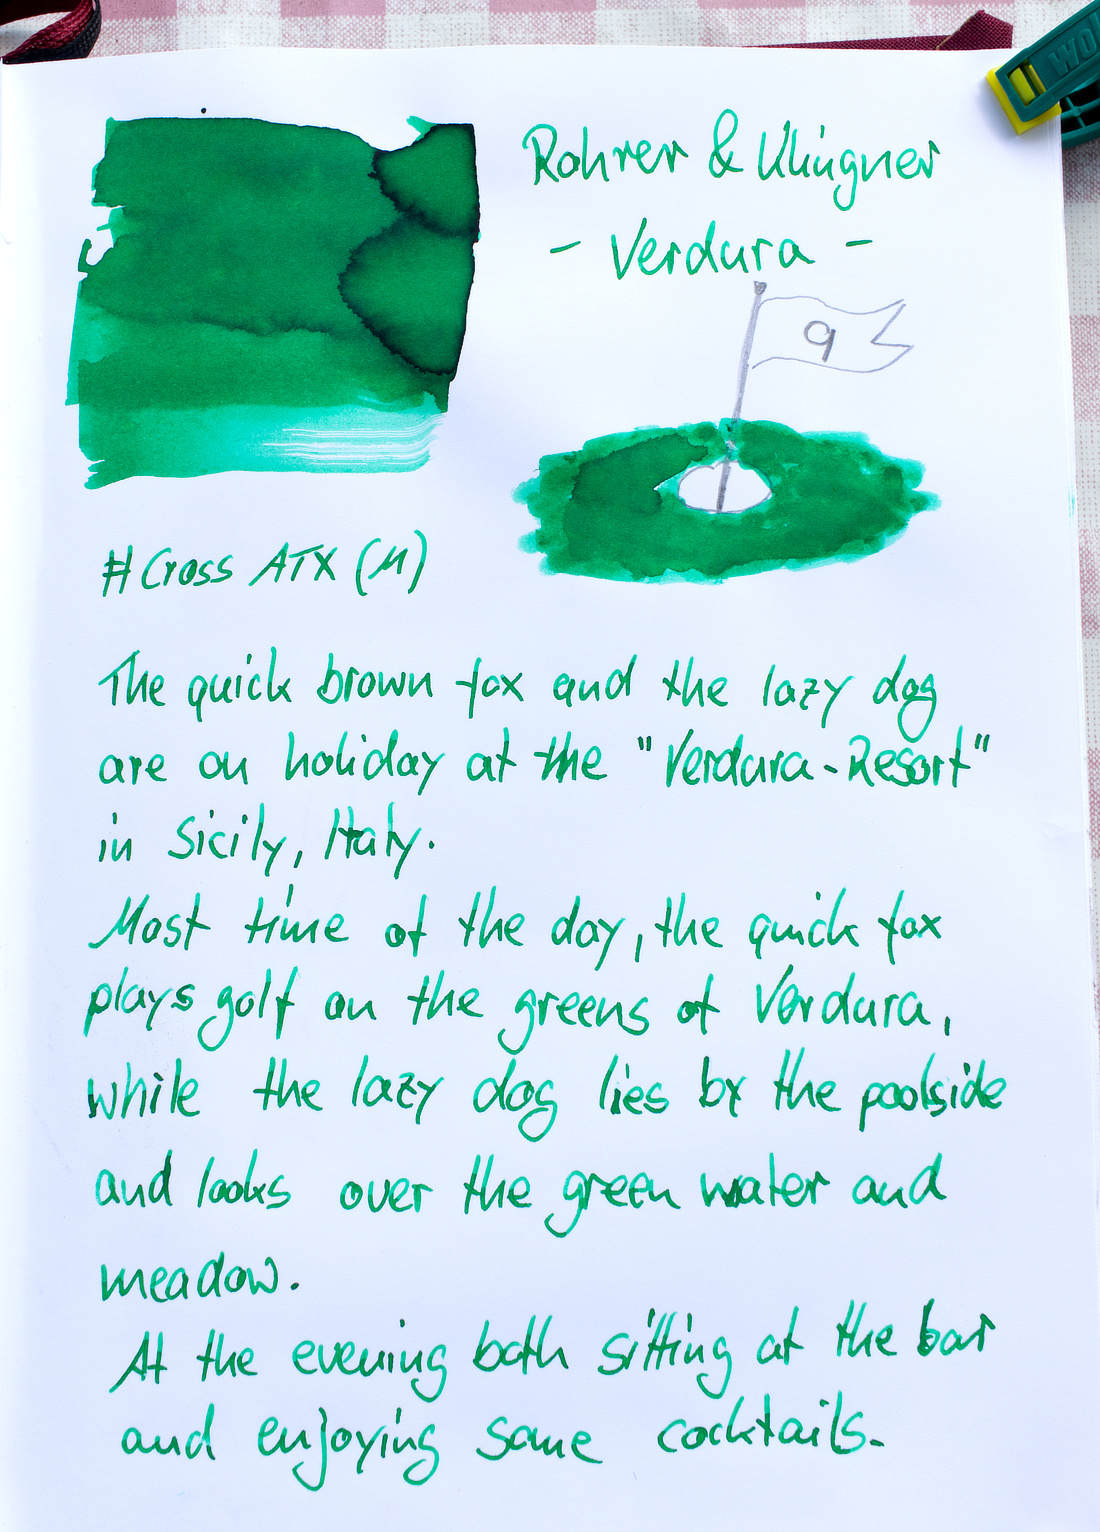 Rohrer & Klingner
- Verdura -
9
# Cross ATX (M)
The quick brown fox and the lazy dog
are on holiday at the "Verdura-Resort"
in Sicily, Italy.
Most time of the day, the quick fox
plays golf on the greens of Verdura,
while the lazy dog lies by the poolside
and looks over the green water and
meadow.
At the evening both sitting at the bar
and enjoying some cocktails.